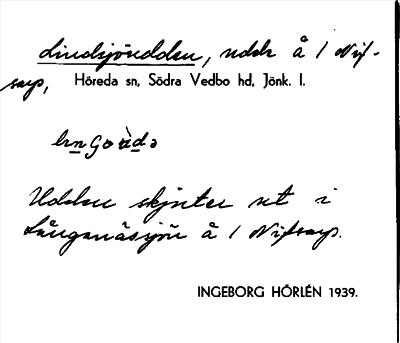 Lindsjöudden, udde å 1 Nif-
sarp, Höreda sn, Södra Vedbo hd, Jönk. l.
Udden skjuter ut i
Långanäsjön å 1 Nifsarp.
INGEBORG HÖRLÉN 1939.